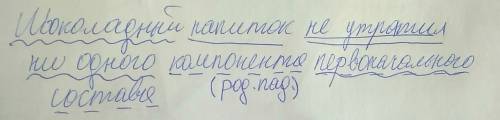 Шоколадный напиток не утратил
ни одного компонента первоначального
состава (род.пад.)